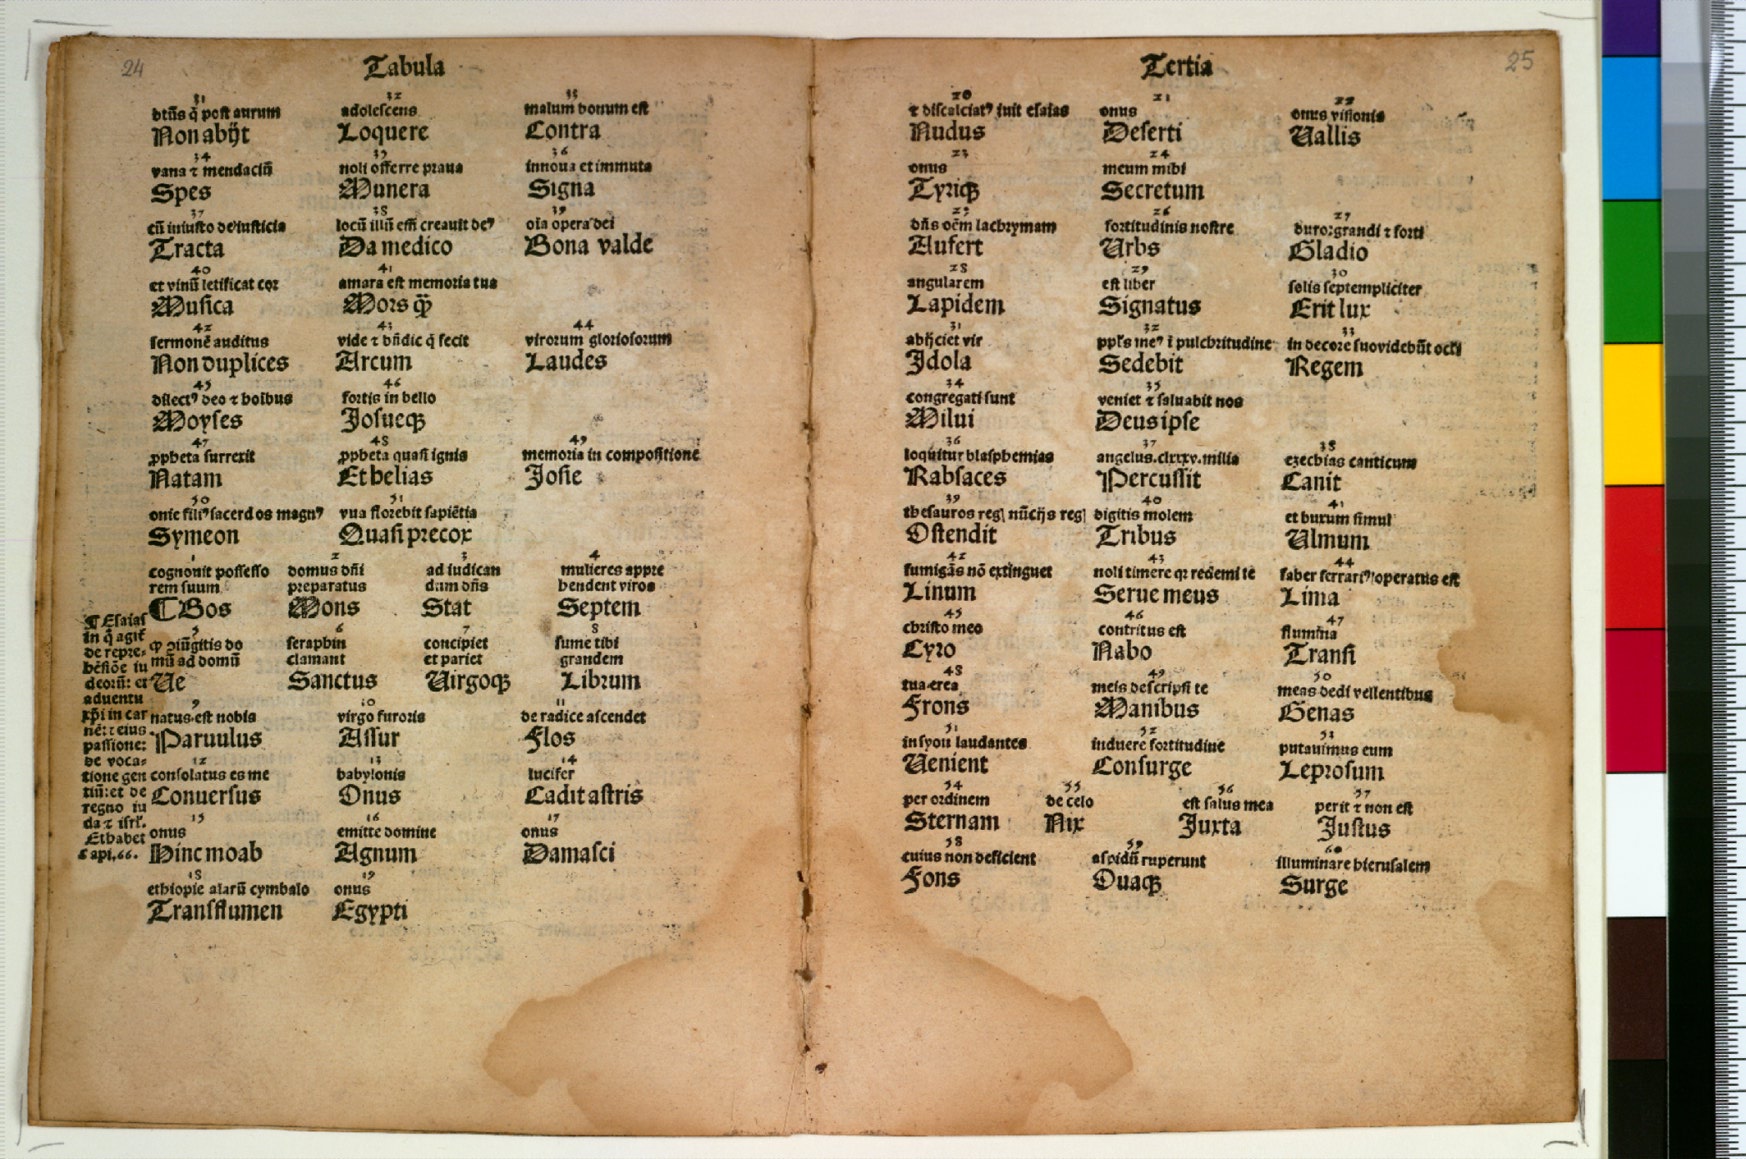 24
Tabula
31 32 33
btũs q̃ post aurum adolescens malum bonum est
Non abijt Loquere Contra
34 35 36
vana ⁊ mendaciũ noli offerre praua innoua et immuta
Spes Munera Signa
37 38 39
cũ iniusto de iusticia locũ illũ eñ creauit deꝰ oĩa opera dei
Tracta Da medico Bona valde
40 41
et vinũ letificat cor amara est memoria tua
Musica Mors q̃
42 43 44
sermonẽ auditus vide ⁊ bñdic q̃ fecit virorum gloriosorum
Non duplices Arcum Laudes
45 46
dilectꝰ deo ⁊ hoibus fortis in bello
Moyses Josueqꝫ
47 48 49
ꝓpheta surrexit ꝓpheta quasi ignis memoria in compositionẽ
Natam Et helias Josie
50 51
onie filiꝰ sacerdos magnꝰ vua florebit sapiẽtia
Symeon Quasi precox
1 2 3 4
cognouit possesso domus dñi ad iudican mulieres appre
rem suum preparatus dum dñs hendent viros
¶ Bos Mons Stat Septem
¶ Esaias
in q̃ agit̃
de repre-
hẽsiõe iu
deorũ: et
aduentu
xp̃i in car
nẽ: ⁊ eius
passione:
de voca-
tione gen
tiũ: et de
regno iu
da ⁊ isrl̃.
Et habet
capi. 66.
5 6 7 8
q̃ ꝯiũgitis do seraphin concipiet sume tibi
mũ ad domũ clamant et pariet grandem
Ue Sanctus Uirgoqꝫ Librum
9 10 11
natus est nobis virgo furoris de radice ascendet
Paruulus Assur Flos
12 13 14
consolatus es me babylonis lucifer
Conuersus Onus Cadit astris
15 16 17
onus emitte domine onus
Hinc moab Agnum Damasci
18 19
ethiopie alarũ cymbalo onus
Transflumen Egypti
25
Tertia
20 21 22
⁊ discalciatꝰ iuit esaias onus onus visionis
Nudus Deserti Uallis
23 24
onus meum mihi
Tyriqꝫ Secretum
25 26 27
dñs oẽm lachrymam fortitudinis nostre duro: grandi ⁊ forti
Aufert Urbs Gladio
28 29 30
angularem est liber solis septempliciter
Lapidem Signatus Erit lux
31 32 33
abijciet vir ppl̃s meꝰ ĩ pulchritudine in decore suo videbũt oc̃li
Idola Sedebit Regem
34 35
congregati sunt veniet ⁊ saluabit nos
Milui Deus ipse
36 37 38
loquitur blasphemias angelus .clxxxv. milia ezechias canticum
Rabsaces Percussit Canit
39 40 41
thesauros regꝭ nũcijs regꝭ digitis molem et buxum simul
Ostendit Tribus Ulmum
42 43 44
fumigãs nõ extinguet noli timere qꝛ redemi te faber ferrariꝰ operatus est
Linum Serue meus Lima
45 46 47
christo meo contritus est flumina
Cyro Nabo Transi
48 49 50
tua erea meis descripsi te meas dedi vellentibus
Frons Manibus Genas
51 52 53
in syon laudantes induere fortitudine putauimus eum
Uenient Consurge Leprosum
54 55 56 57
per ordinem de celo est salus mea perit ⁊ non est
Sternam Nix Juxta Justus
58 59 60
cuius non deficient aspidũ ruperunt illuminare hierusalem
Fons Ouaqꝫ Surge